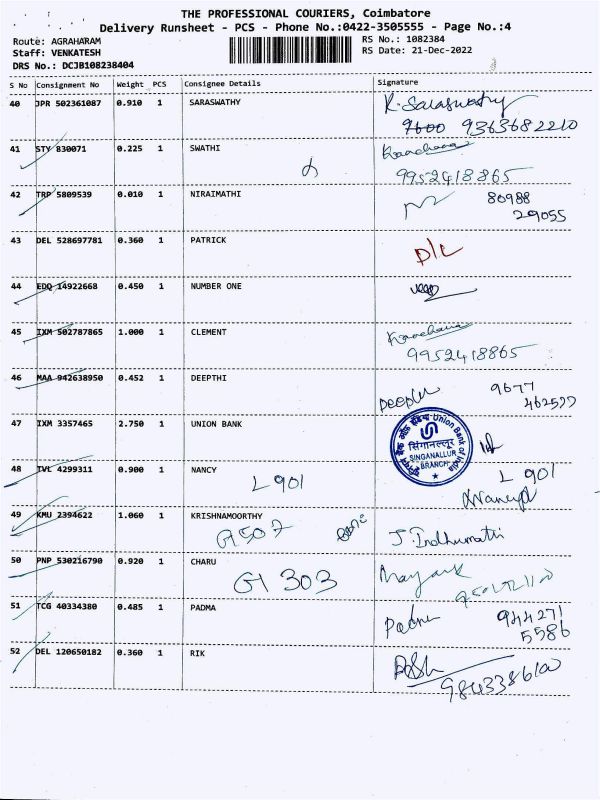 THE PROFESSIONAL COURIERS, Coimbatore
Delivery Runsheet - PCS - Phone No.:0422-3505555 - Page No.:4
Route: AGRAHARAM
Staff: VENKATESH
DRS No.: DCJB108238404
RS No.: 1082384
RS Date: 21-Dec-2022
S No Consignment No Weight PCS Consignee Details Signature
40 JPR 502361087 0.910 1 SARASWATHY R. Saraswathy
9600 9363682210
41 STY 830071 0.225 1 SWATHI Kanchana
9952418865
42 TRP 5809539 0.010 1 NIRAIMATHI 80988
29055
43 DEL 528697781 0.360 1 PATRICK D/L
44 EDQ 14922668 0.450 1 NUMBER ONE
45 IXM 502787865 1.000 1 CLEMENT Kanchana
9952418865
46 MAA 942638950 0.452 1 DEEPTHI 9677
462577
47 IXM 3357465 2.750 1 UNION BANK
यूनियन बैंक ऑफ इंडिया Union Bank of India
सिंगानल्लूर
SINGANALLUR
BRANCH
48 TVL 4299311 0.900 1 NANCY L 901 L 901
49 KMU 2394622 1.060 1 KRISHNAMOORTHY
G507 J. Indhumathi
50 PNP 530216790 0.920 1 CHARU Mayank
G1 303
51 TCG 40334380 0.485 1 PADMA Padma 944271
5586
52 DEL 120650182 0.360 1 RIK
9843386100